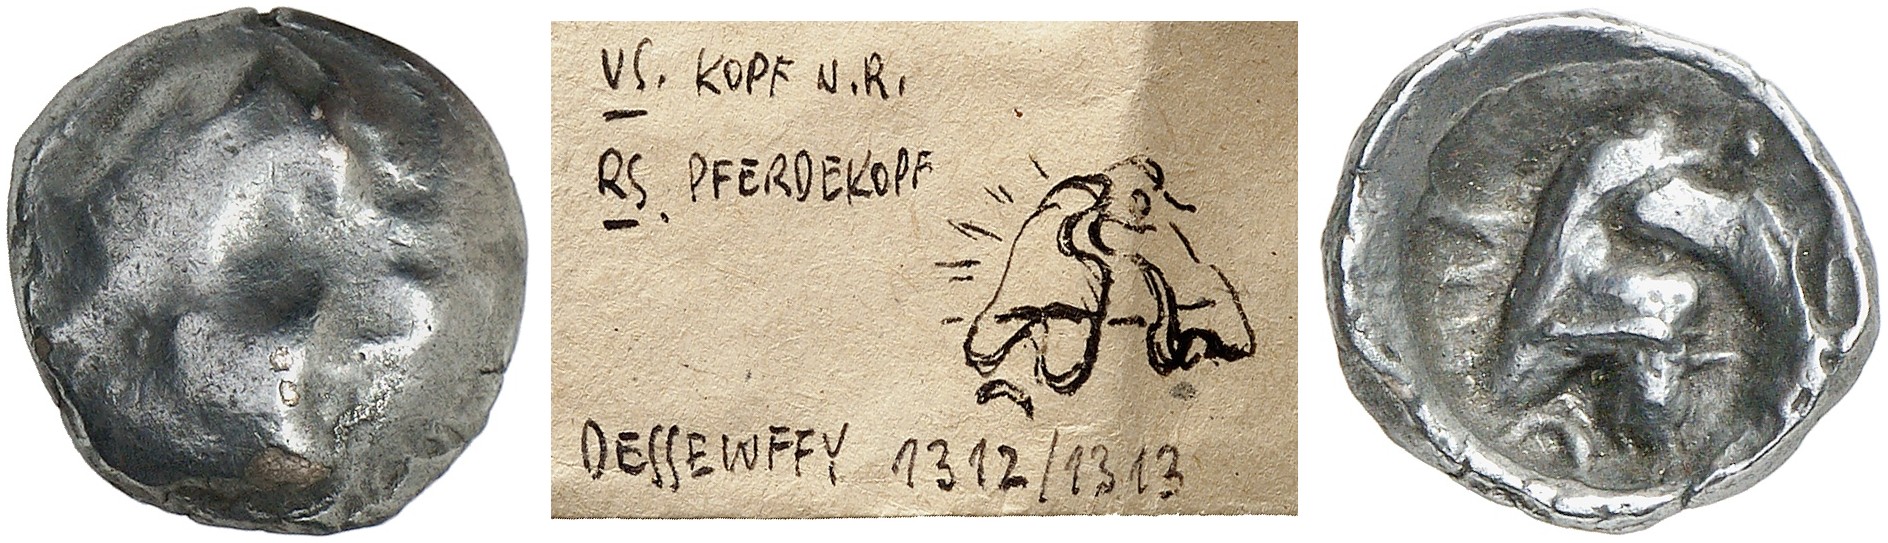 VS. KOPF N.R.
RS. PFERDEKOPF
DESSEWFFY 1312/1313